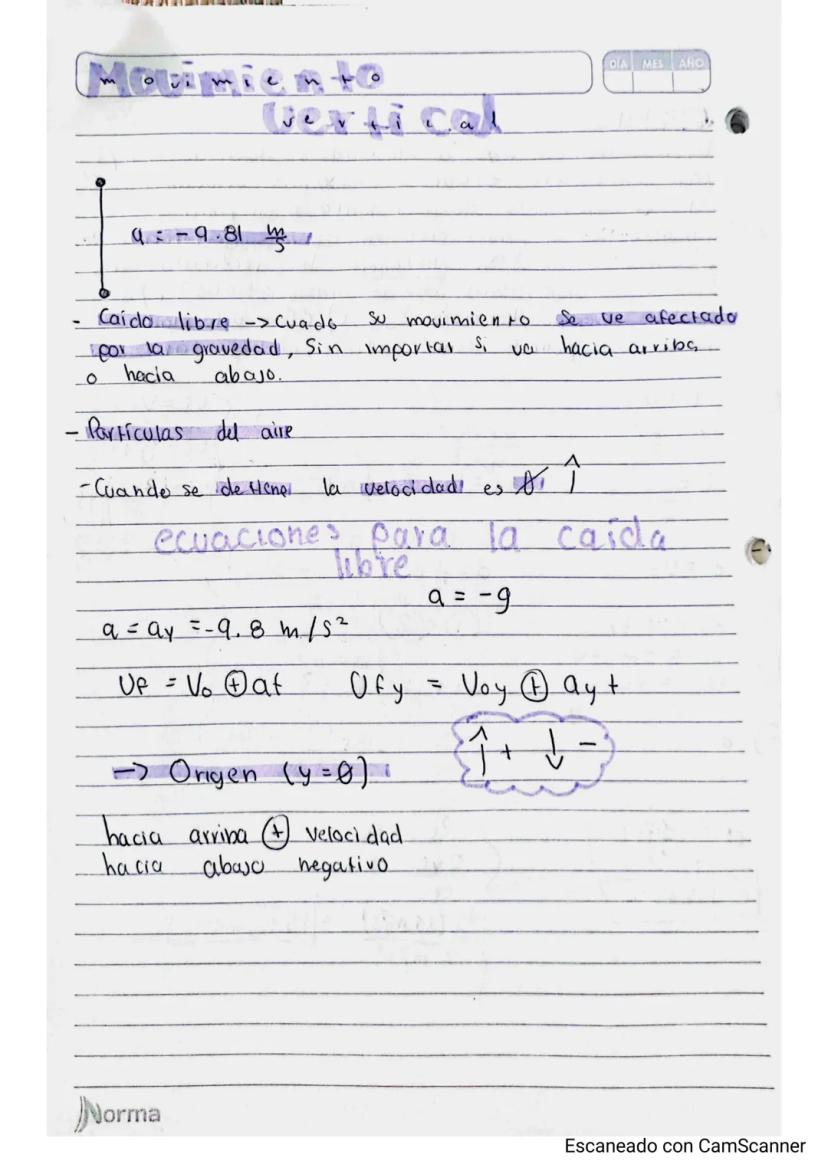 Movimiento
vertical
DÍA MES AÑO
a = -9.81 m/s
- Caída libre -> Cuado su movimiento se ve afectado
por la gravedad, Sin importar si va hacia arriba
o hacia abajo.
- Partículas del aire
- Cuando se detiene la velocidad es 0 ↑
ecuaciones para la caída
libre
a = -g
a = ay = -9.8 m/s²
Vf = Vo ⊕ at Vfy = Voy ⊕ ay t
↑ + ↓ -
-> Origen (y = 0)
hacia arriba ⊕ velocidad
hacia abajo negativo
Norma
Escaneado con CamScanner